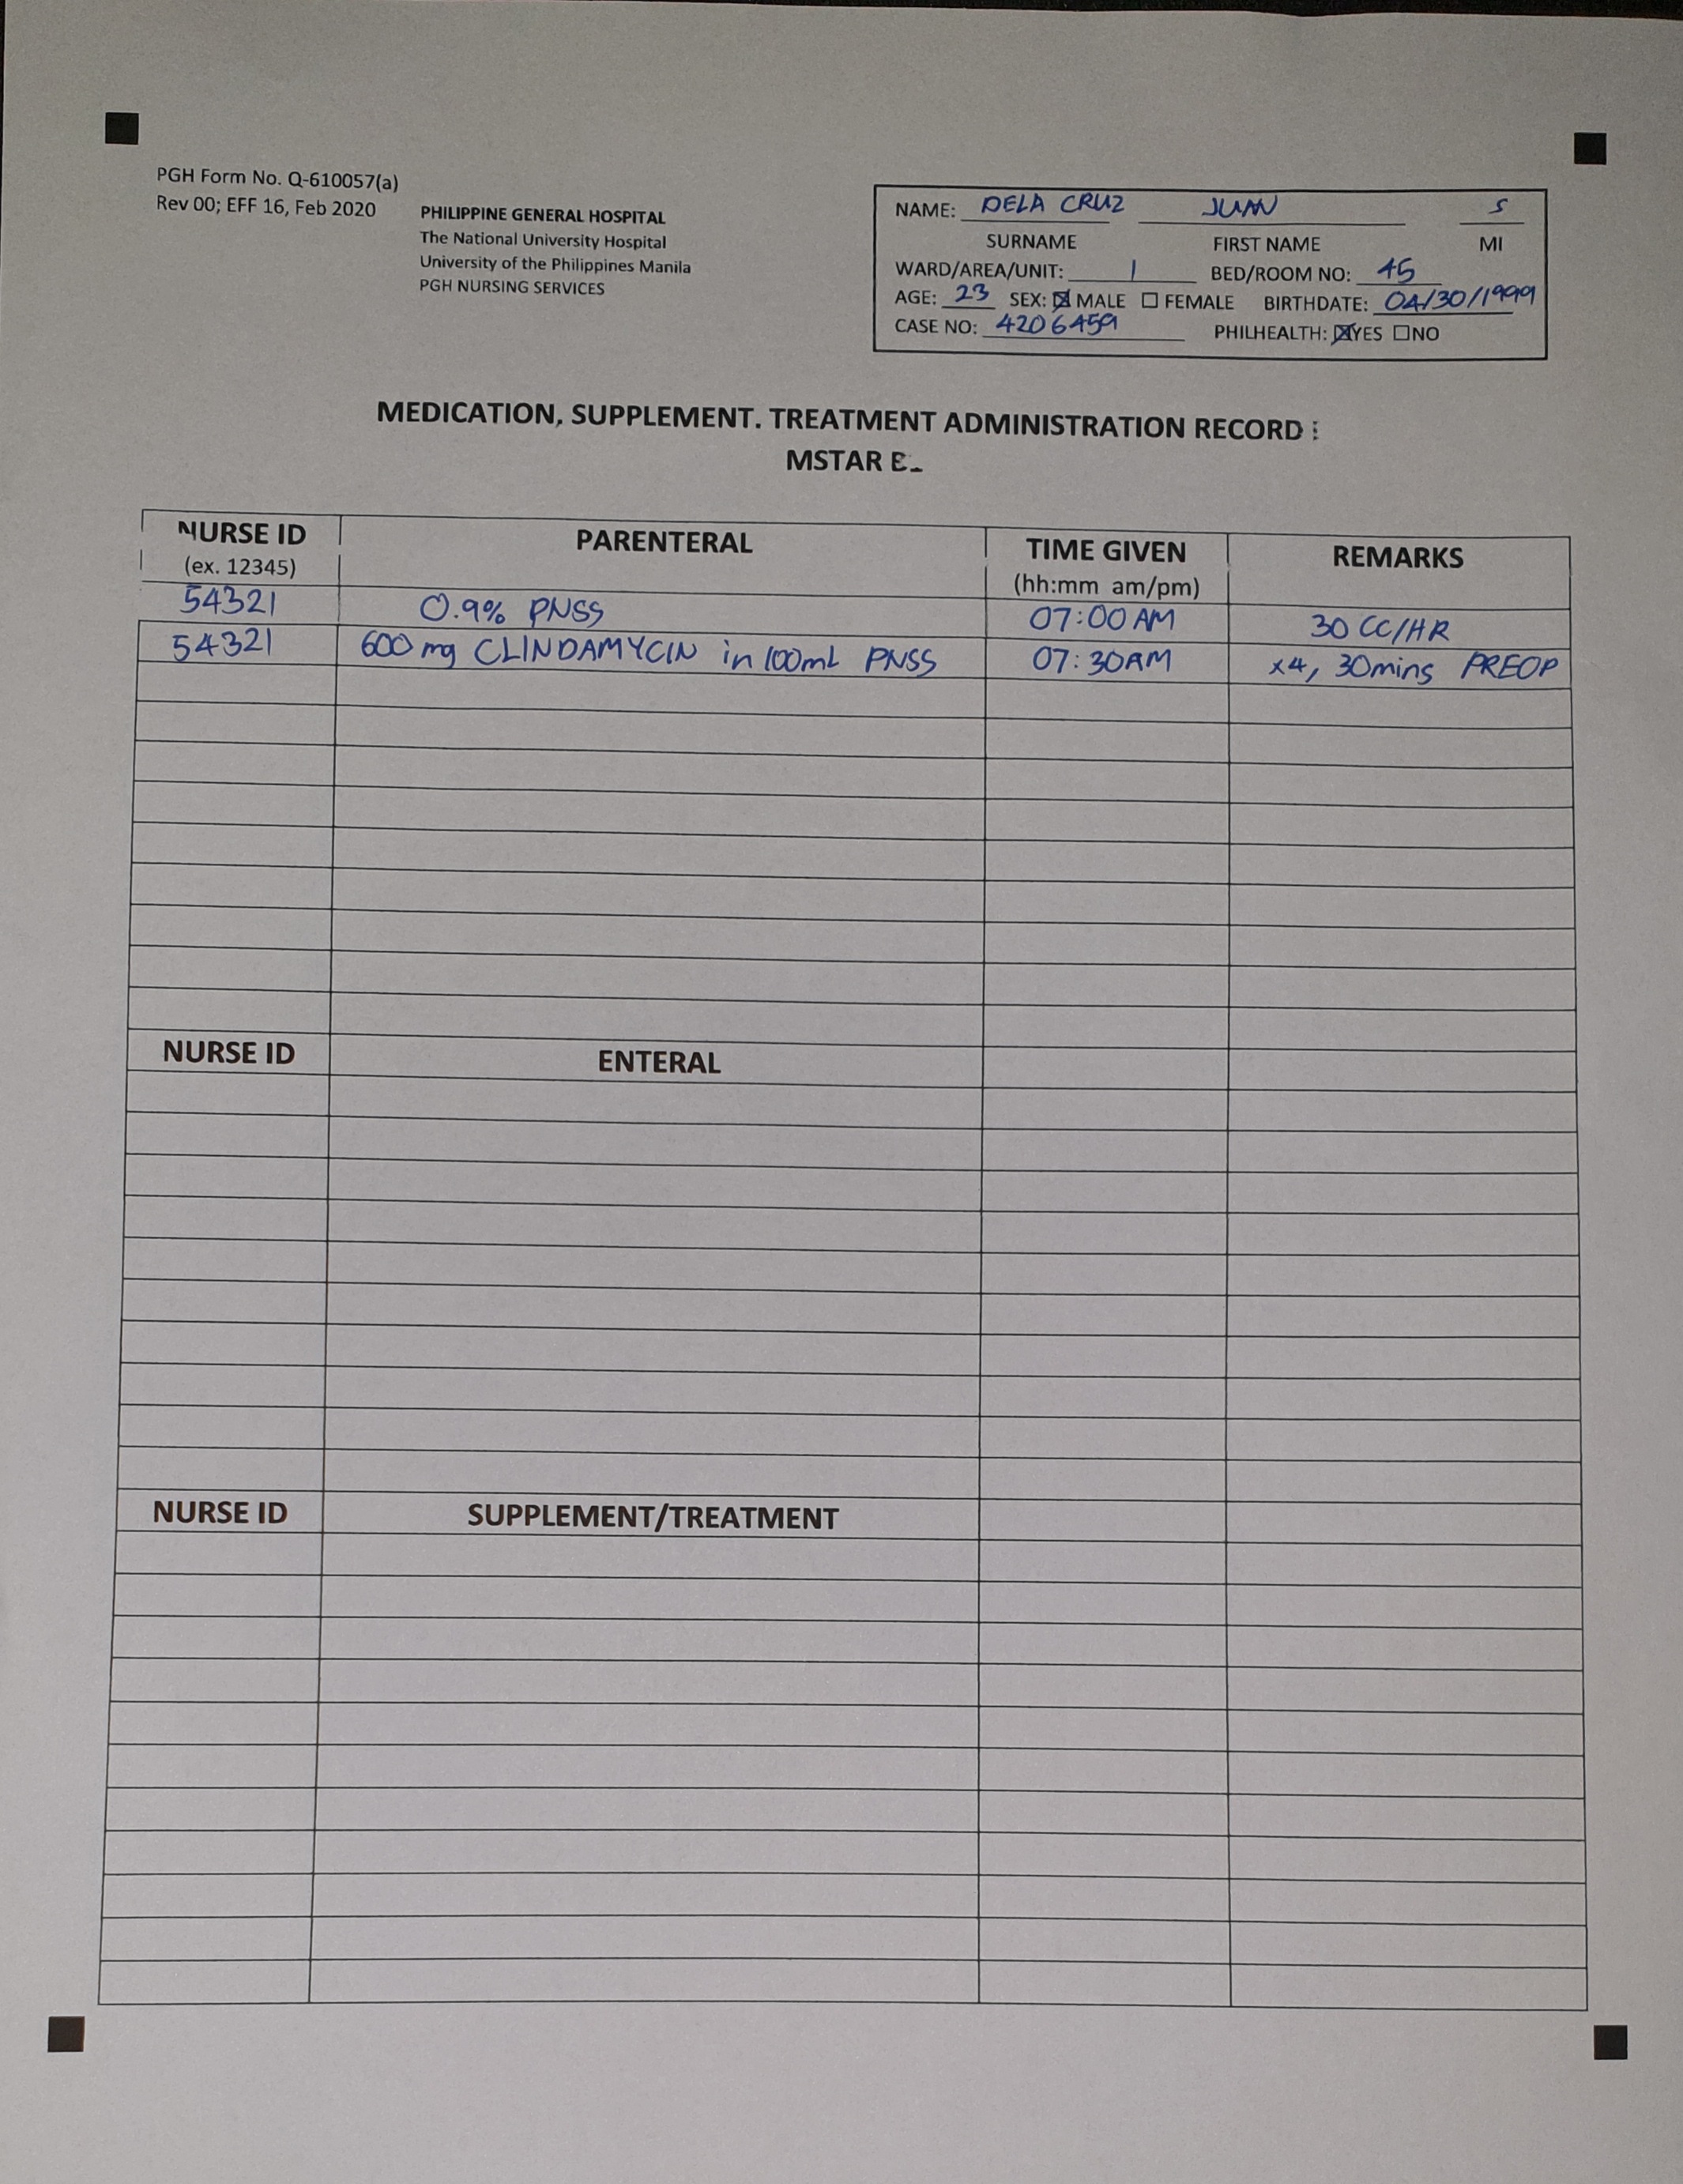 PGH Form No. Q-610057(a)
Rev 00; EFF 16, Feb 2020
PHILIPPINE GENERAL HOSPITAL
The National University Hospital
University of the Philippines Manila
PGH NURSING SERVICES
NAME: DELA CRUZ JUAN S
SURNAME FIRST NAME MI
WARD/AREA/UNIT: 1 BED/ROOM NO: 45
AGE: 23 SEX: ☒ MALE ☐ FEMALE BIRTHDATE: 04/30/1999
CASE NO: 4206459 PHILHEALTH: ☒YES ☐NO
MEDICATION. SUPPLEMENT. TREATMENT ADMINISTRATION RECORD
MSTAR
NURSE ID PARENTERAL TIME GIVEN REMARKS
(ex. 12345) (hh:mm am/pm)
54321 0.9% PNSS 07:00 AM 30 CC/HR
54321 600 mg CLINDAMYCIN in 100mL PNSS 07:30AM x4, 30mins PREOP
NURSE ID ENTERAL
NURSE ID SUPPLEMENT/TREATMENT